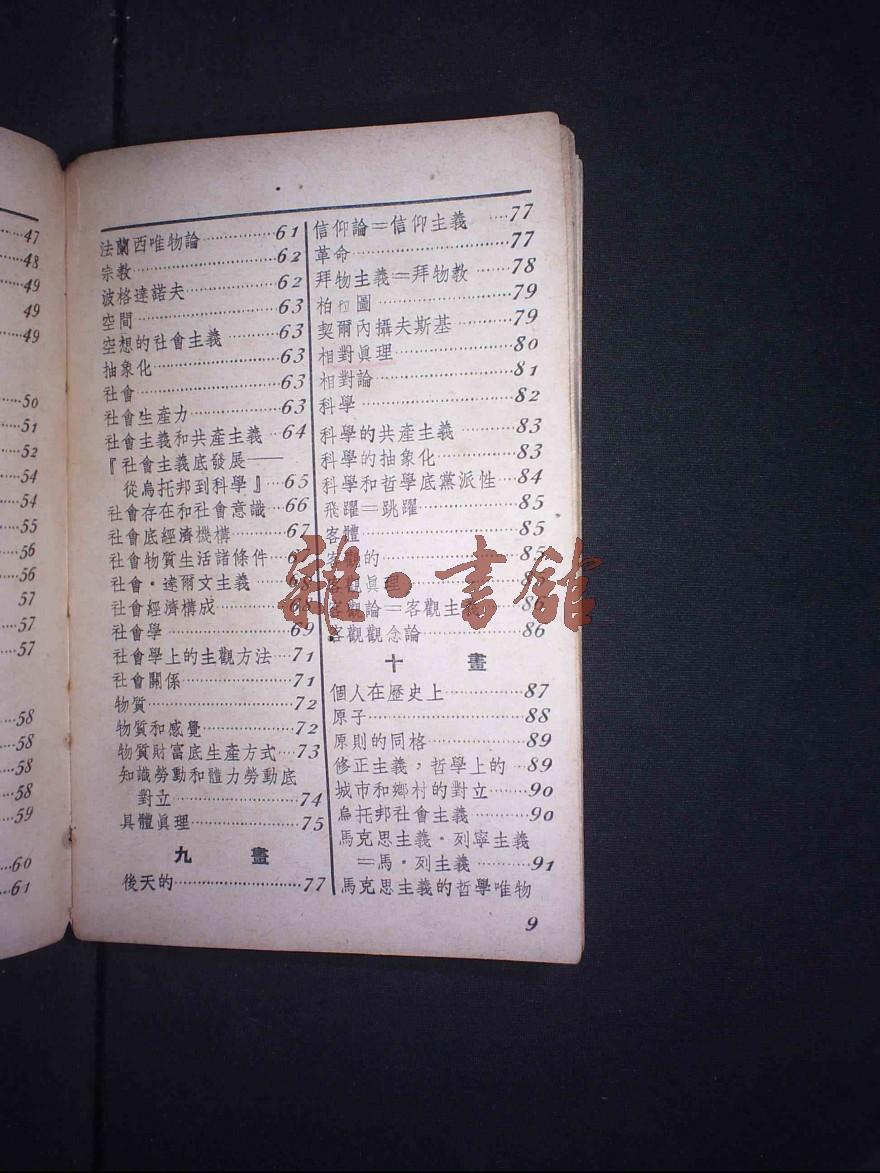 47
48
49
49
49
50
51
52
54
54
55
56
56
57
57
57
58
58
58
58
59
60
61
法蘭西唯物論…………61
宗教…………62
波格達諾夫…………62
空間…………63
空想的社會主義…………63
抽象化…………63
社會…………63
社會生產力…………63
社會主義和共產主義…64
『社會主義底發展——
從烏托邦到科學』…65
社會存在和社會意識…66
社會底經濟機構…………67
社會物質生活諸條件…67
社會·達爾文主義……68
社會經濟構成…………68
社會學…………69
社會學上的主觀方法…71
社會關係…………71
物質…………72
物質和感覺…………72
物質財富底生產方式…73
知識勞動和體力勞動底
對立…………74
具體眞理…………75
九 畫
後天的…………77
信仰論＝信仰主義…77
革命…………77
拜物主義＝拜物教……78
柏拉圖…………79
契爾內攝夫斯基……79
相對眞理…………80
相對論…………81
科學…………82
科學的共產主義……83
科學的抽象化…………83
科學和哲學底黨派性…84
飛躍＝跳躍…………85
客體…………85
客觀的…………85
客觀眞理…………
客觀論＝客觀主義 86
客觀觀念論…………86
十 畫
個人在歷史上…………87
原子…………88
原則的同格…………89
修正主義，哲學上的…89
城市和鄉村的對立……90
烏托邦社會主義………90
馬克思主義·列寧主義
＝馬·列主義………91
馬克思主義的哲學唯物
9
雜·書館